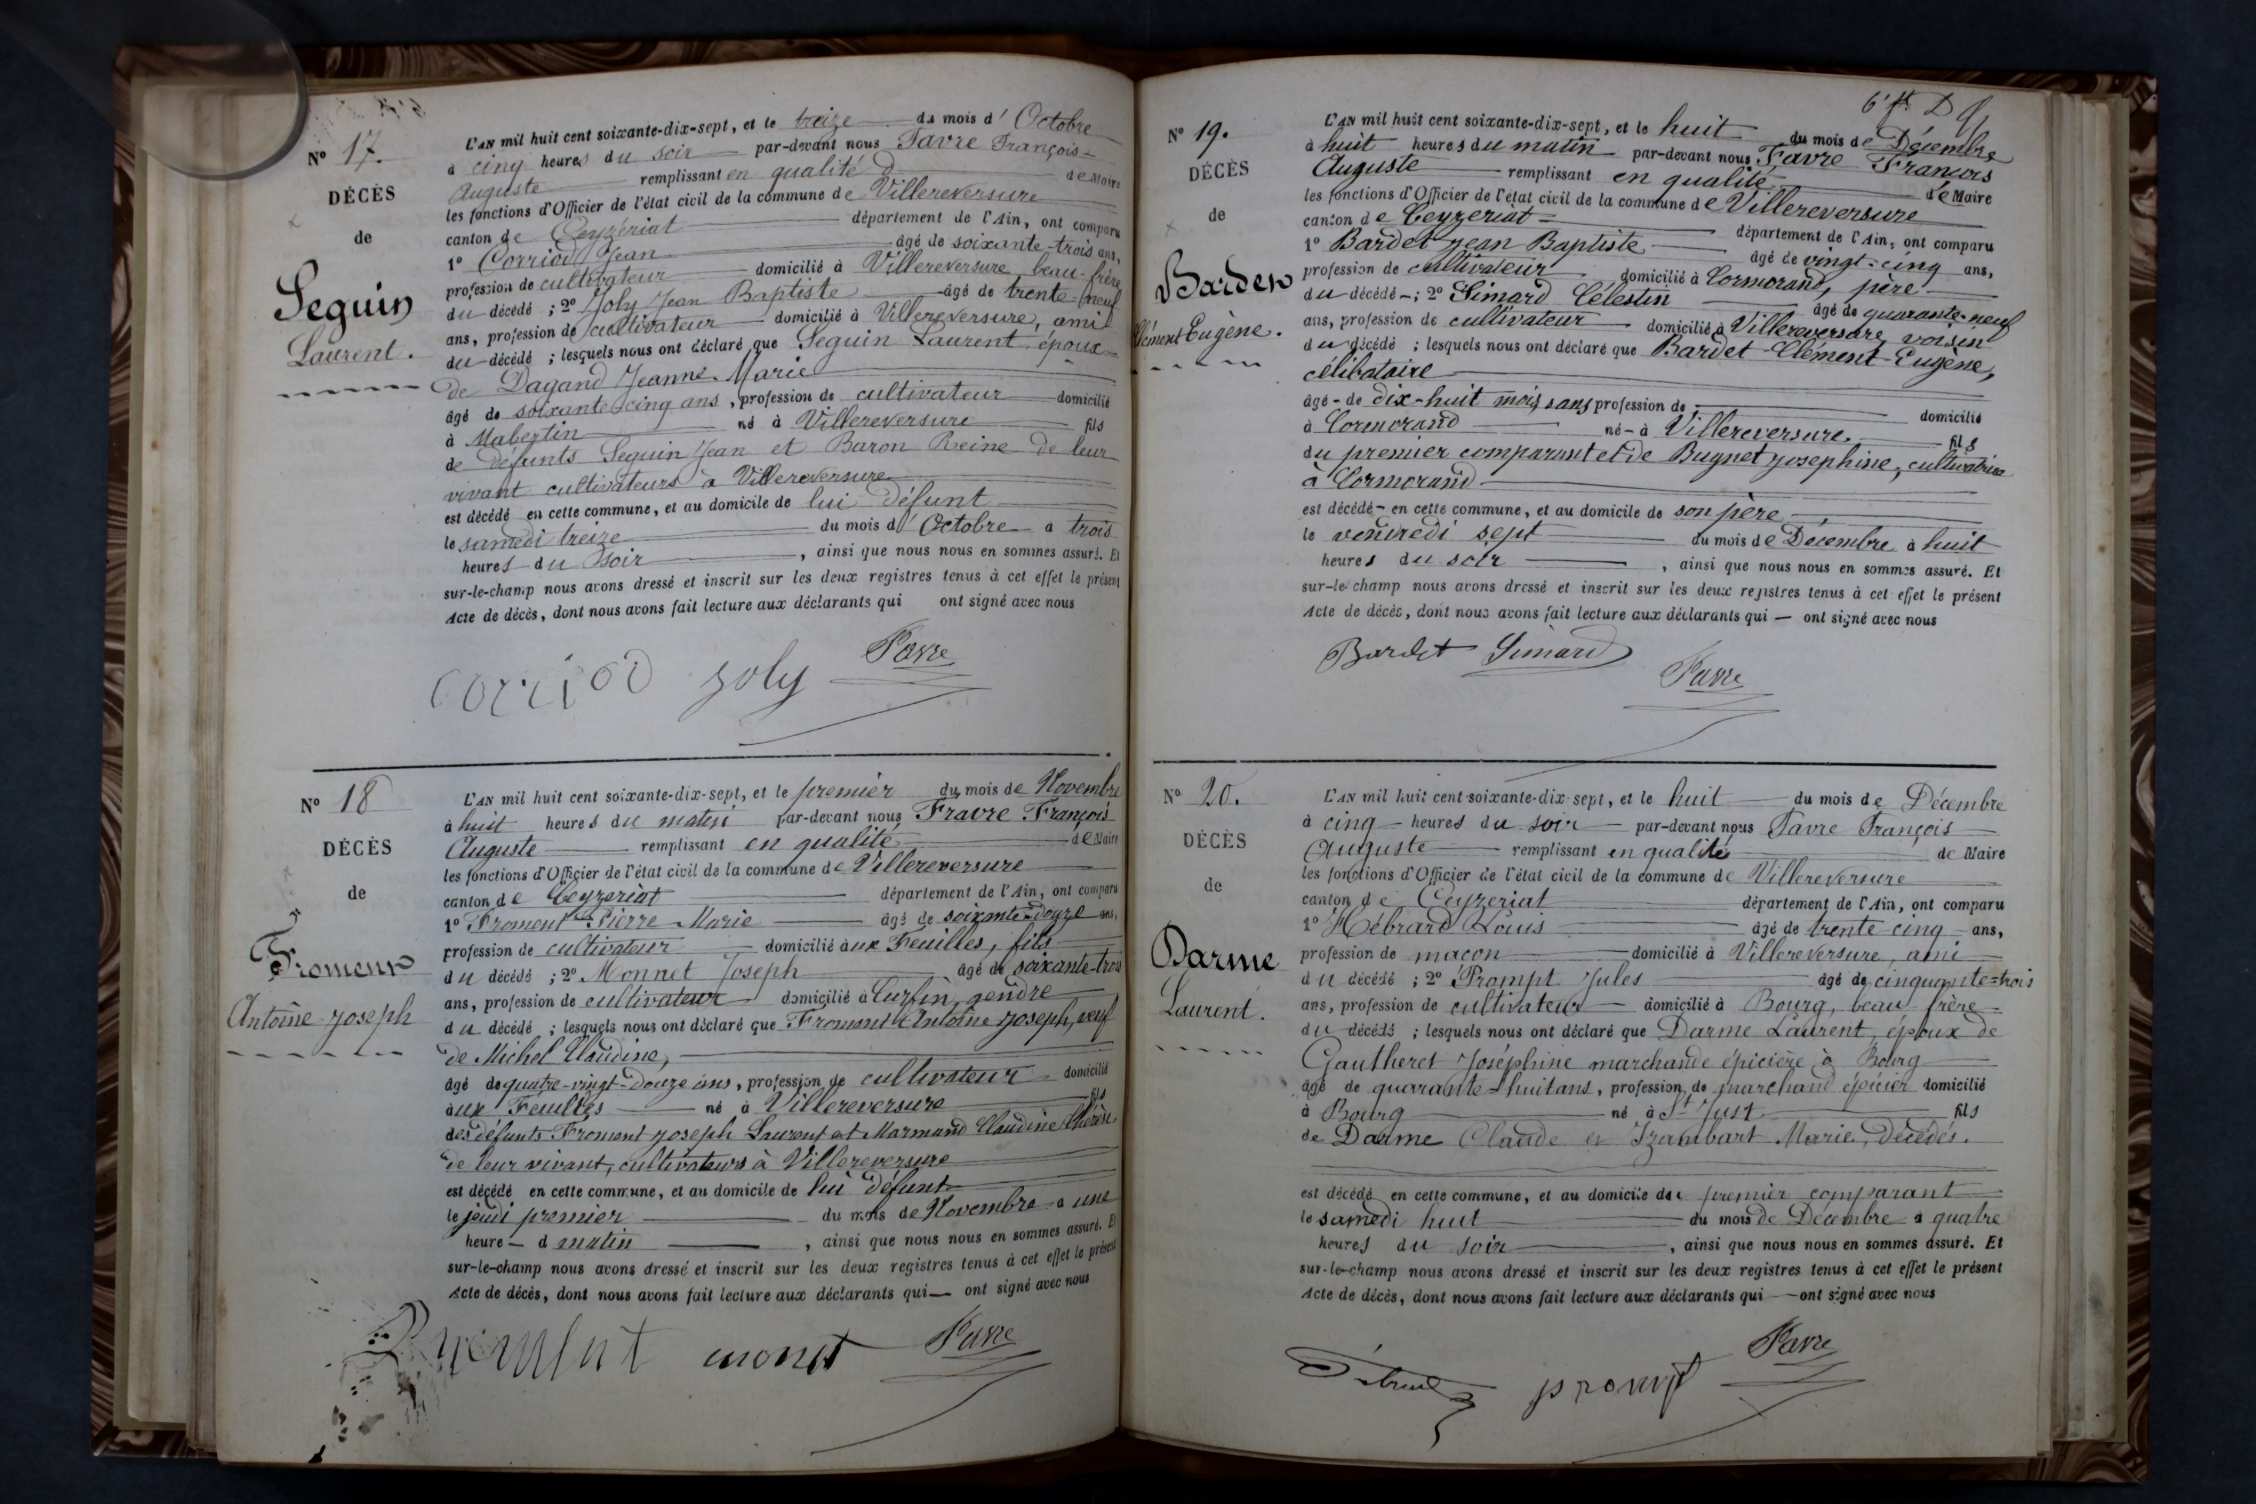 Nº 17.
DÉCÈS
de
Seguin
Laurent.
L'AN mil huit cent soixante-dix-sept, et le treize du mois d' Octobre
à cinq heures du soir par-devant nous Favre François-
Auguste remplissant en qualité d de Maire
les fonctions d'Officier de l'état civil de la commune de Villereversure
canton de Ceyzériat département de l'Ain, ont comparu
1º Corriod Jean âgé de soixante-trois ans,
profession de cultivateur domicilié à Villereversure, beau-frère
du décédé ; 2º Joly Jean Baptiste âgé de trente-neuf
ans, profession de cultivateur domicilié à Villereversure, ami
du décédé ; lesquels nous ont déclaré que Seguin Laurent époux
de Dagand Jeanne Marie
âgé de soixante cinq ans, profession de cultivateur domicilié
à Mabertin né à Villereversure fils
de défunts Seguin Jean et Baron Reine de leur
vivant cultivateurs à Villereversure
est décédé en cette commune, et au domicile de lui défunt
le samedi treize du mois d' Octobre à trois
heures du soir, ainsi que nous nous en sommes assuré. Et
sur-le-champ nous avons dressé et inscrit sur les deux registres tenus à cet effet le présent
Acte de décès, dont nous avons fait lecture aux déclarants qui ont signé avec nous
corriod joly Favre
Nº 18
DÉCÈS
de
Froment
Antoine Joseph
L'AN mil huit cent soixante-dix-sept, et le premier du mois de Novembre
à huit heures du matin par-devant nous Fravre François
Auguste remplissant en qualité de Maire
les fonctions d'Officier de l'état civil de la commune de Villereversure
canton de Ceyzeriat département de l'Ain, ont comparu
1º Froment Pierre Marie âgé de soixante-douze ans,
profession de cultivateur domicilié aux Feuilles, fils
du décédé ; 2º Monnet Joseph âgé de soixante-trois
ans, profession de cultivateur domicilié à Curfin, gendre
du décédé ; lesquels nous ont déclaré que Froment Antoine Joseph, veuf
de Michel Claudine,
âgé de quatre-vingt-douze ans, profession de cultivateur domicilié
aux Feuilles né à Villereversure fils
des défunts Froment Joseph Laurent et Marmand Claudine Thérèse
de leur vivant, cultivateurs à Villereversure
est décédé en cette commune, et au domicile de lui défunt
le jeudi premier du mois de Novembre à une
heure d matin, ainsi que nous nous en sommes assuré. Et
sur-le-champ nous avons dressé et inscrit sur les deux registres tenus à cet effet le présent
Acte de décès, dont nous avons fait lecture aux déclarants qui ont signé avec nous
monet Favre
Nº 19.
DÉCÈS
de
Bardet
Clément Eugène.
L'AN mil huit cent soixante-dix-sept, et le huit du mois de Décembre
à huit heures du matin par-devant nous Favre François
Auguste remplissant en qualité de Maire
les fonctions d'Officier de l'état civil de la commune de Villereversure
canton de Ceyzeriat département de l'Ain, ont comparu
1º Bardet Jean Baptiste âgé de vingt-cinq ans,
profession de cultivateur domicilié à Cormorand, père
du décédé ; 2º Simard Célestin âgé de quarante-neuf
ans, profession de cultivateur domicilié à Villereversure, voisin
du décédé ; lesquels nous ont déclaré que Bardet Clément-Eugène,
célibataire
âgé de dix-huit mois, sans profession de domicilié
à Cormorand né à Villereversure, fils
du premier comparant et de Bugnet Josephine, cultivatrice
à Cormorand
est décédé en cette commune, et au domicile de son père
le vendredi sept du mois de Décembre à huit
heures du soir, ainsi que nous nous en sommes assuré. Et
sur-le-champ nous avons dressé et inscrit sur les deux registres tenus à cet effet le présent
Acte de décès, dont nous avons fait lecture aux déclarants qui — ont signé avec nous
Bardet Simard
Favre
Nº 20.
DÉCÈS
de
Darme
Laurent.
L'AN mil huit cent soixante-dix-sept, et le huit du mois de Décembre
à cinq heures du soir par-devant nous Favre François
Auguste remplissant en qualité de Maire
les fonctions d'Officier de l'état civil de la commune de Villereversure
canton de Ceyzeriat département de l'Ain, ont comparu
1º Hébrard Louis âgé de trente cinq ans,
profession de maçon domicilié à Villereversure, ami
du décédé ; 2º Prompt Jules âgé de cinquante-trois
ans, profession de cultivateur domicilié à Bourg, beau frère
du décédé ; lesquels nous ont déclaré que Darme Laurent, époux de
Gautheret Joséphine marchande épicière à Bourg
âgé de quarante-huit ans, profession de marchand épicier domicilié
à Bourg né à St Just fils
de Darme Claude et Izambart Marie, décédés.
est décédé en cette commune, et au domicile du premier comparant
le samedi huit du mois de Décembre à quatre
heures du soir, ainsi que nous nous en sommes assuré. Et
sur-le-champ nous avons dressé et inscrit sur les deux registres tenus à cet effet le présent
Acte de décès, dont nous avons fait lecture aux déclarants qui — ont signé avec nous
prompt Favre